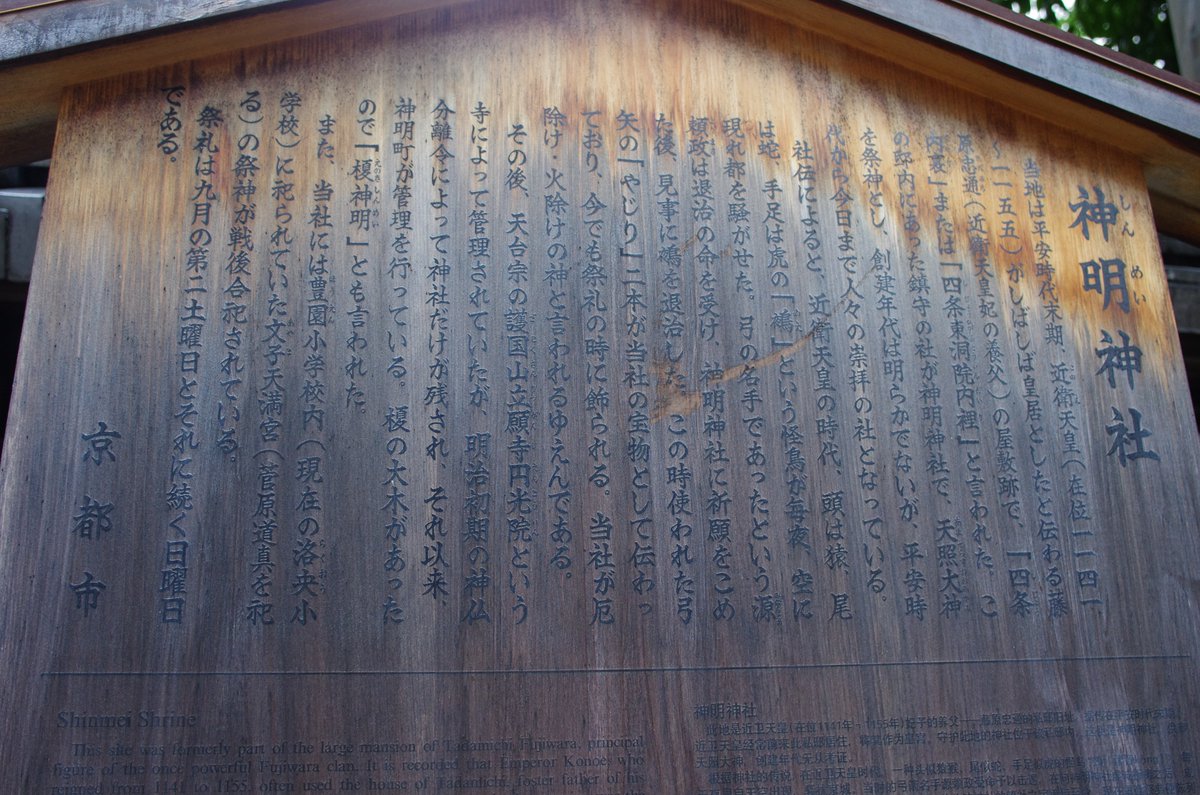 神明神社
しんめい
当地は平安時代末期、近衛天皇(在位一一四一
〜一一五五)がしばしば皇居としたと伝わる藤
原忠通(近衛天皇妃の養父)の屋敷跡で、「四条
内裏」または「四条東洞院内裡」と言われた。こ
の邸内にあった鎮守の社が神明神社で、天照大神
を祭神とし、創建年代は明らかでないが、平安時
代から今日まで人々の崇拝の社となっている。
社伝によると、近衛天皇の時代、頭は猿、尾
は蛇、手足は虎の「鵺」という怪鳥が毎夜、空に
現れ都を騒がせた。弓の名手であったという源
頼政は退治の命を受け、神明神社に祈願をこめ
た後、見事に鵺を退治した。この時使われた弓
矢の「やじり」二本が当社の宝物として伝わっ
ており、今でも祭礼の時に飾られる。当社が厄
除け・火除けの神と言われるゆえんである。
その後、天台宗の護国山立願寺円光院という
寺によって管理されていたが、明治初期の神仏
分離令によって神社だけが残され、それ以来、
神明町が管理を行っている。榎の大木があった
ので「榎神明」とも言われた。
また、当社には豊園小学校内(現在の洛央小
学校)に祀られていた文子天満宮(菅原道真を祀
る)の祭神が戦後合祀されている。
祭礼は九月の第二土曜日とそれに続く日曜日
である。
京都市
Shinmei Shrine
This site was formerly part of the large mansion of Tadamichi Fujiwara, principal
figure of the once powerful Fujiwara clan. It is recorded that Emperor Konoe, who
reigned from 1141 to 1155, often used the house of Tadamichi, foster father of his
神明神社
此地是近卫天皇(在位1141年-1155年)
近卫天皇经常
天照大神，创建年代无从考证。
根据神社的传说，在近卫天皇时代，一种头似猿猴，尾似蛇，手足似虎的